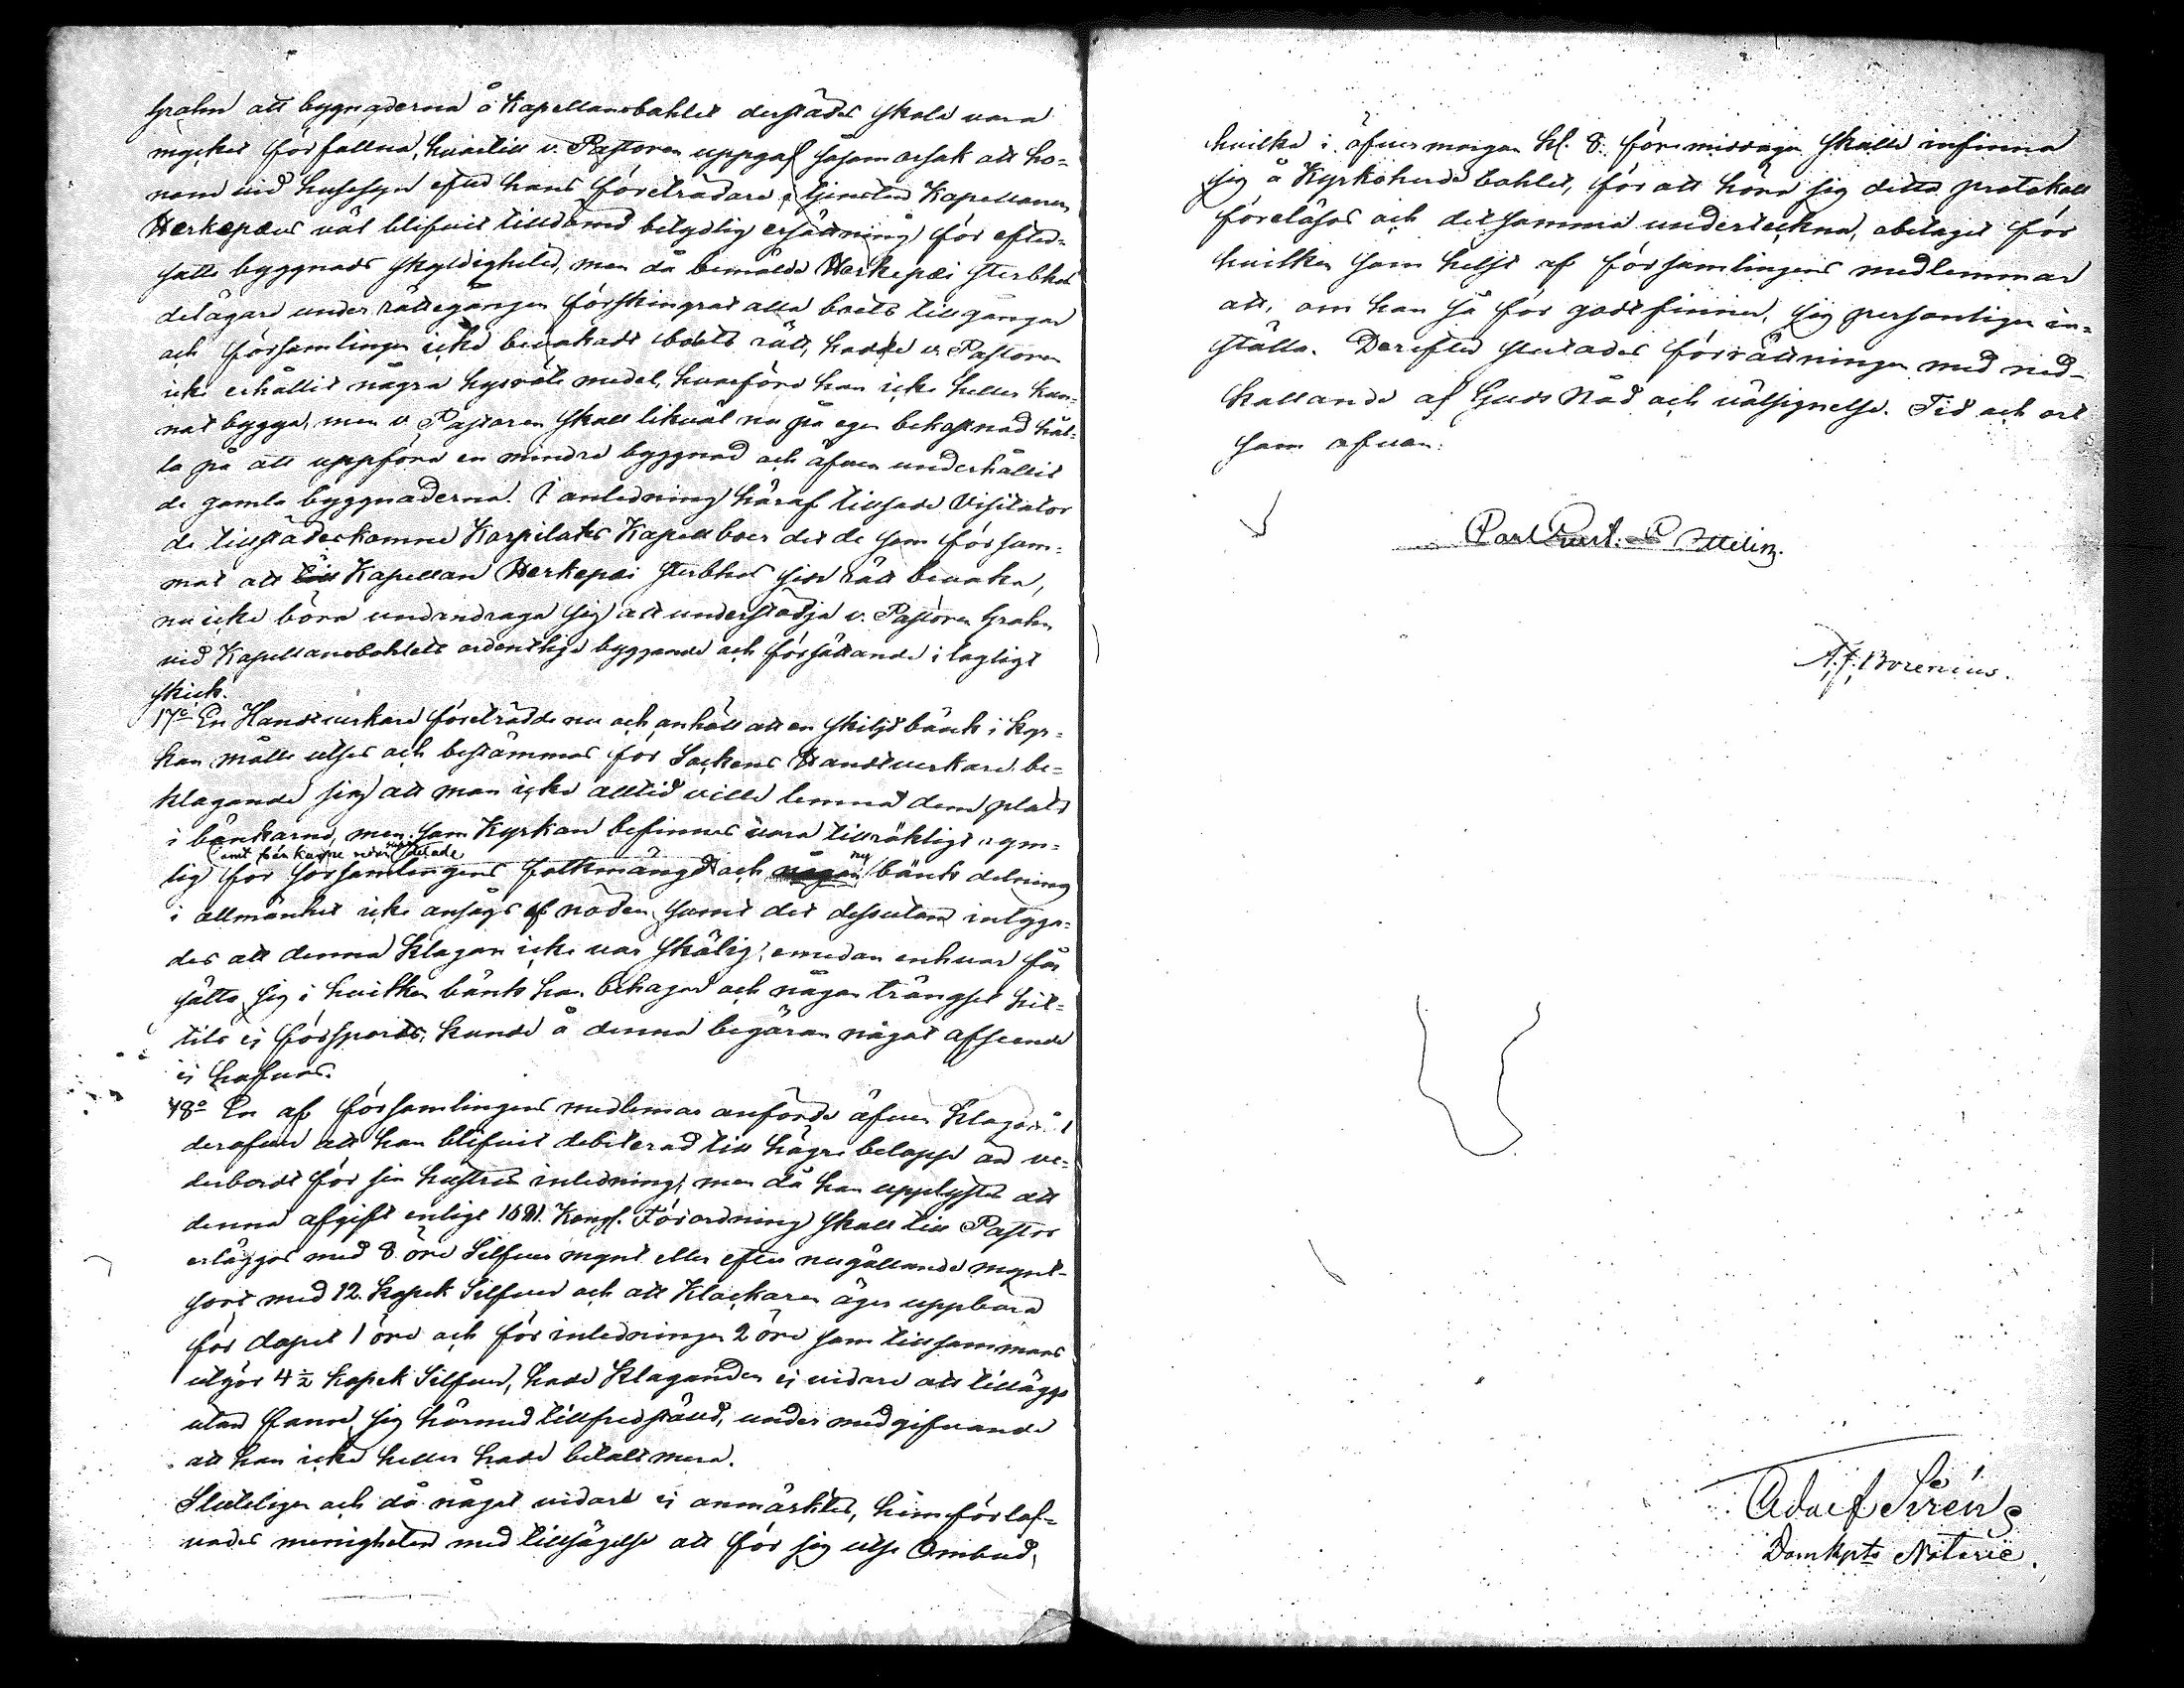 Grahn att byggnaderna å Kapellansbohlet derstädes skola vara
mycket förfallna, hvartill v. Pastoren uppgaf såsom orsak att ho-
nom vid husesyn efter hans företrädare i tjensten Kapellanen
Herkepæus väl blifvit tilldömd betydlig ersättning för efter-
satte byggnads skyldigheter, men då bemälde Herkepæi sterbhus
delägare under rättegången förskingrat alla boets tillgångar
och församlingen icke bevakade boets rätt, hade v. Pastoren
icke erhållit några husröte medel, hvarföre han icke heller kun-
nat bygga, men v. Pastoren skall likväl nu på egen bekostnad hål-
la på att uppföra en mindre byggnad och äfven underhållit
de gamla byggnaderna. I anledning häraf tillsade Visitator
de tillstädeskomne Karpilaks Kapellboer det de som försum-
mat att Kapellan Herkepæi sterbhus sin rätt bevaka,
nu icke böra undandraga sig att understödja v. Pastoren Grahn
vid Kapellansbohlets ordentliga byggande och försättande i lagligt
skick.
17o En Handtverkare företrädde nu och anhöll att en skiljd bänk i kyr-
kan måtte utses och bestämmas för Sockens Handtverkare, be-
klagande sig att man icke alltid ville lemna dem plats
i bänkarne, men som Kyrkan befinnes vara tillräkligt rym-
lig för församlingens folkmängd och ny bänk delning
i allmänhet icke ansågs af nöden, samt det dessutom intyga-
des att denna klagan icke var skälig, emedan enhvar får
sätta sig i hvilken bänk han behagar och någon trängsel hit-
tils ej försports, kunde å denna begäran något afseende
ej hafvas.
18o En af församlingens medlemmar anförde äfven klagan
deröfver att han blifvit debiterad till högre belopp än ve-
derbordt för sin hustrus inledning, men då han upplystes att
denna afgift enligt 1681. Kongl. Förordning skall till Pastor
erläggas med 8 öre Silfver mynt eller efter nu gällande mynt-
sort med 12 kopek Silfver och att Klockaren äger uppbära
för dopet 1 öre och för inledningen 2 öre som tillsammans
utgör 4½ kopek Silfver, hade Klaganden ej vidare att tillägga
utan fann sig härmed tillfredställd, under medgifvande
att han icke heller hade betalt mera.
Slutligen och då något vidare ej anmärktes, hemförlof-
vades menigheten med tillsägelse att för sig utse Ombud,
hvilka i öfvermorgon kl. 8. förmiddagen skulle infinna
sig å Kyrkoherde bohlet, för att höra sig detta protokoll
föreläsas och detsamma underteckna, obetaget för
hvilken som helst af församlingens medlemmar
att, om han så för godt finner, sig personligen in-
ställa. Derefter slutades förrättningen med ned-
kallande af Guds Nåd och välsignelse. Tid och ort
som ofvan.
Carl Gust. Ottelin.
A. F. Borenius.
Adolf Sirén
Domkpts Notarie.